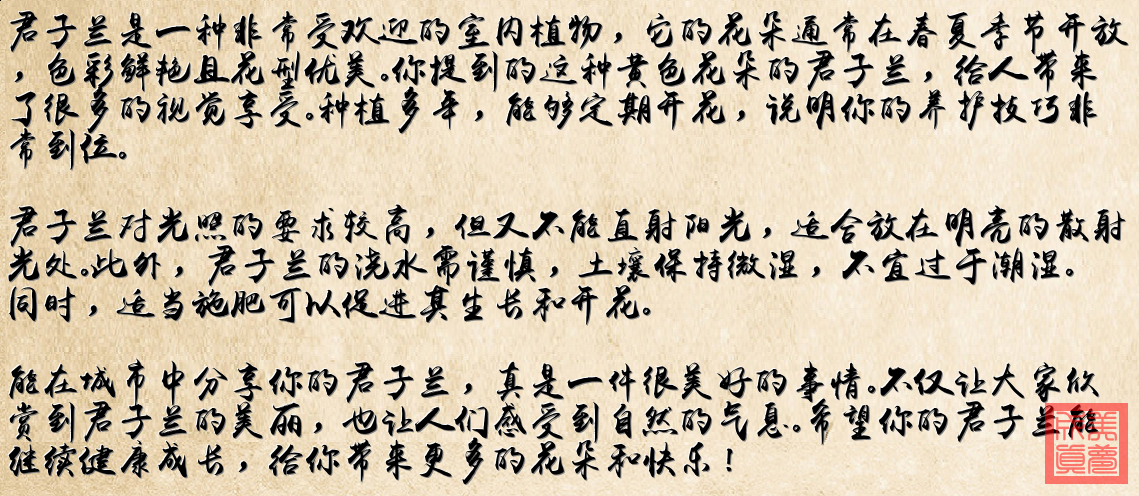 君子兰是一种非常受欢迎的室内植物，它的花朵通常在春夏季节开放
，色彩鲜艳且花型优美。你提到的这种黄色花朵的君子兰，给人带来
了很多的视觉享受。种植多年，能够定期开花，说明你的养护技巧非
常到位。
君子兰对光照的要求较高，但又不能直射阳光，适合放在明亮的散射
光处。此外，君子兰的浇水需谨慎，土壤保持微湿，不宜过于潮湿。
同时，适当施肥可以促进其生长和开花。
能在城市中分享你的君子兰，真是一件很美好的事情。不仅让大家欣
赏到君子兰的美丽，也让人们感受到自然的气息。希望你的君子兰能
继续健康成长，给你带来更多的花朵和快乐！